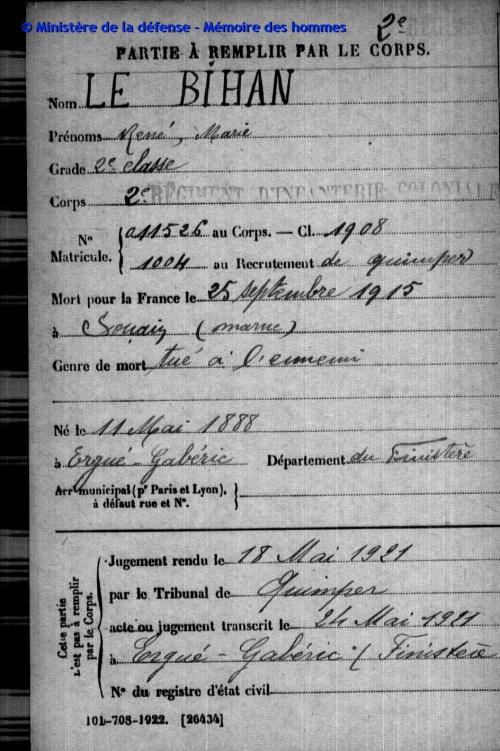 © Ministère de la défense - Mémoire des hommes
2e
PARTIE À REMPLIR PAR LE CORPS.
Nom LE BIHAN
Prénoms René, Marie
Grade 2e classe
Corps 2e RÉGIMENT D'INFANTERIE COLONIALE
N° Matricule. { 011526 au Corps. — Cl. 1908
1004 au Recrutement de quimper
Mort pour la France le 25 septembre 1915
à Souain (marne)
Genre de mort tué à l'ennemi
Né le 11 Mai 1888
à Ergué-Gabéric Département du Finistère
Arr. municipal (pr Paris et Lyon),
à défaut rue et N°.
Cette partie n'est pas à remplir par le Corps.
Jugement rendu le 18 Mai 1921
par le Tribunal de Quimper
acte ou jugement transcrit le 24 Mai 1921
à Ergué-Gabéric (Finistère
N° du registre d'état civil
101-708-1922. [26434]